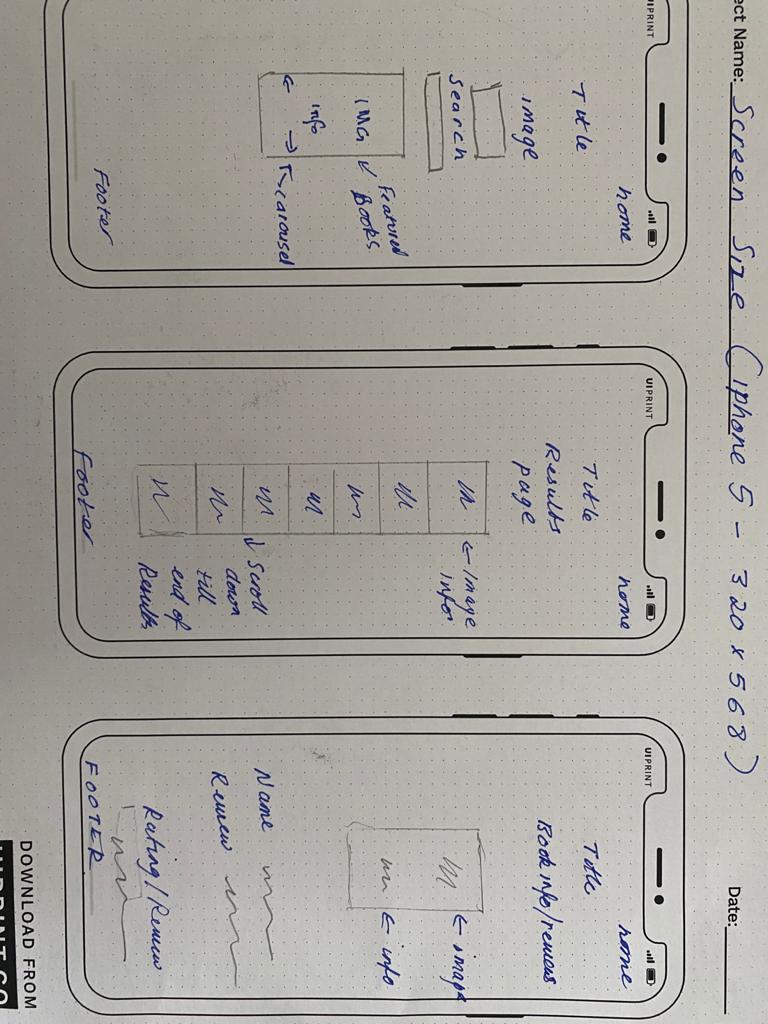 ect Name: Screen Size (iphone 5 - 320 x 568)
Date:
UIPRINT
home
Title
image
Search
IMG
info
Featured
Books
carousel
Footer
UIPRINT
home
Title
Results
page
Image
Info
Scroll
down
till
end of
Results
Footer
UIPRINT
home
Title
Book info/reviews
image
info
Name
Review
Rating/Review
FOOTER
DOWNLOAD FROM
UIPRINT.CO